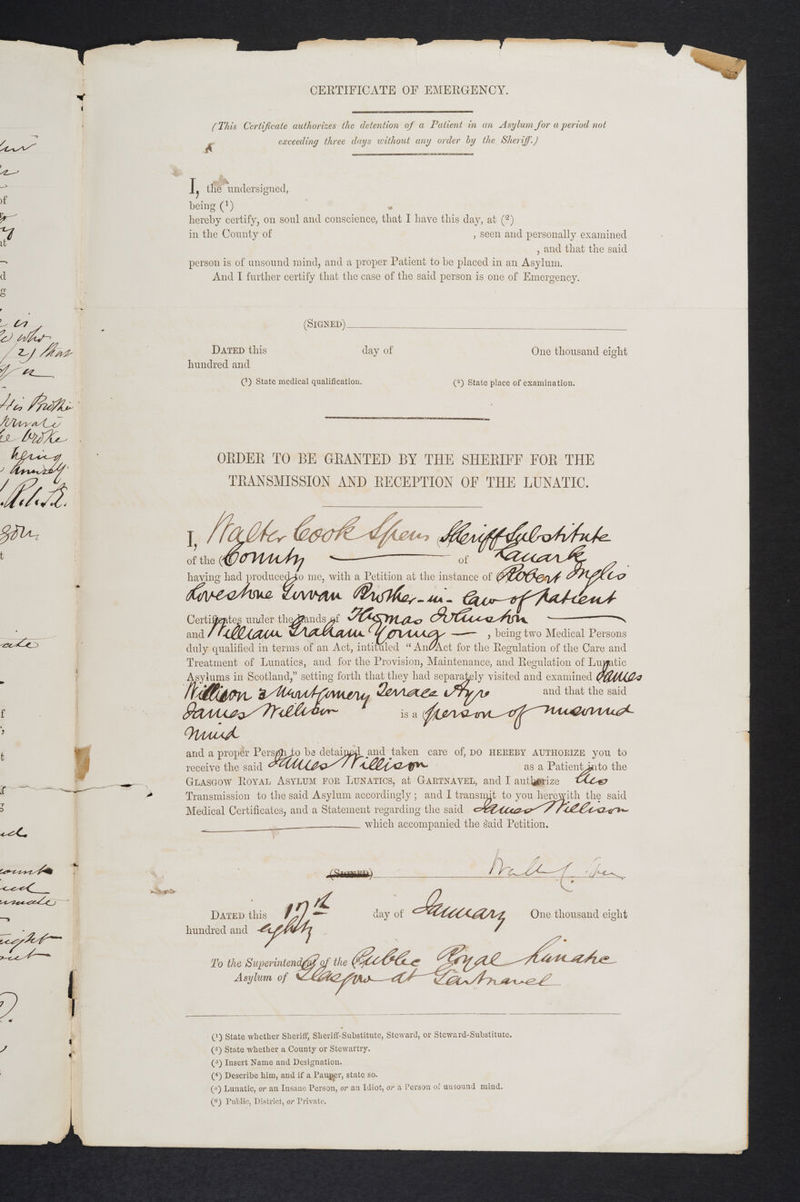 CERTIFICATE OF EMERGENCY.
(This Certificate authorizes the detention of a Patient in an Asylum for a period not
exceeding three days without any order by the Sheriff.)
I, the undersigned,
being (1)
hereby certify, on soul and conscience, that I have this day, at (2)
in the County of , seen and personally examined
, and that the said
person is of unsound mind, and a proper Patient to be placed in an Asylum.
And I further certify that the case of the said person is one of Emergency.
(SIGNED)
DATED this day of One thousand eight
hundred and
(1) State medical qualification. (2) State place of examination.
ORDER TO BE GRANTED BY THE SHERIFF FOR THE
TRANSMISSION AND RECEPTION OF THE LUNATIC.
I, Walter Cook Spens Sheriff Substitute
of the County of Lanark
having had produced to me, with a Petition at the instance of Robert Inglis
Lovestone Girvan Brother-in-Law of Patient
Certificates under the hands of Thomas Johnston
and William Graham Young , being two Medical Persons
duly qualified in terms of an Act, intituled "An Act for the Regulation of the Care and
Treatment of Lunatics, and for the Provision, Maintenance, and Regulation of Lunatic
Asylums in Scotland," setting forth that they had separately visited and examined James
Willison 3 Montgomery Terrace Ayr and that the said
James Willison is a person of unsound
mind
and a proper Person to be detained and taken care of, DO HEREBY AUTHORIZE you to
receive the said James Willison as a Patient into the
GLASGOW ROYAL ASYLUM FOR LUNATICS, at GARTNAVEL, and I authorize his
Transmission to the said Asylum accordingly; and I transmit to you herewith the said
Medical Certificates, and a Statement regarding the said James Willison
which accompanied the said Petition.
(SIGNED) Walter C. Spens
DATED this 17th day of January One thousand eight
hundred and eighty
To the Superintendent of the Public Royal Lunatic
Asylum of Glasgow at Gartnavel
(1) State whether Sheriff, Sheriff-Substitute, Steward, or Steward-Substitute.
(2) State whether a County or Stewartry.
(3) Insert Name and Designation.
(4) Describe him, and if a Pauper, state so.
(5) Lunatic, or an Insane Person, or an Idiot, or a Person of unsound mind.
(6) Public, District, or Private.